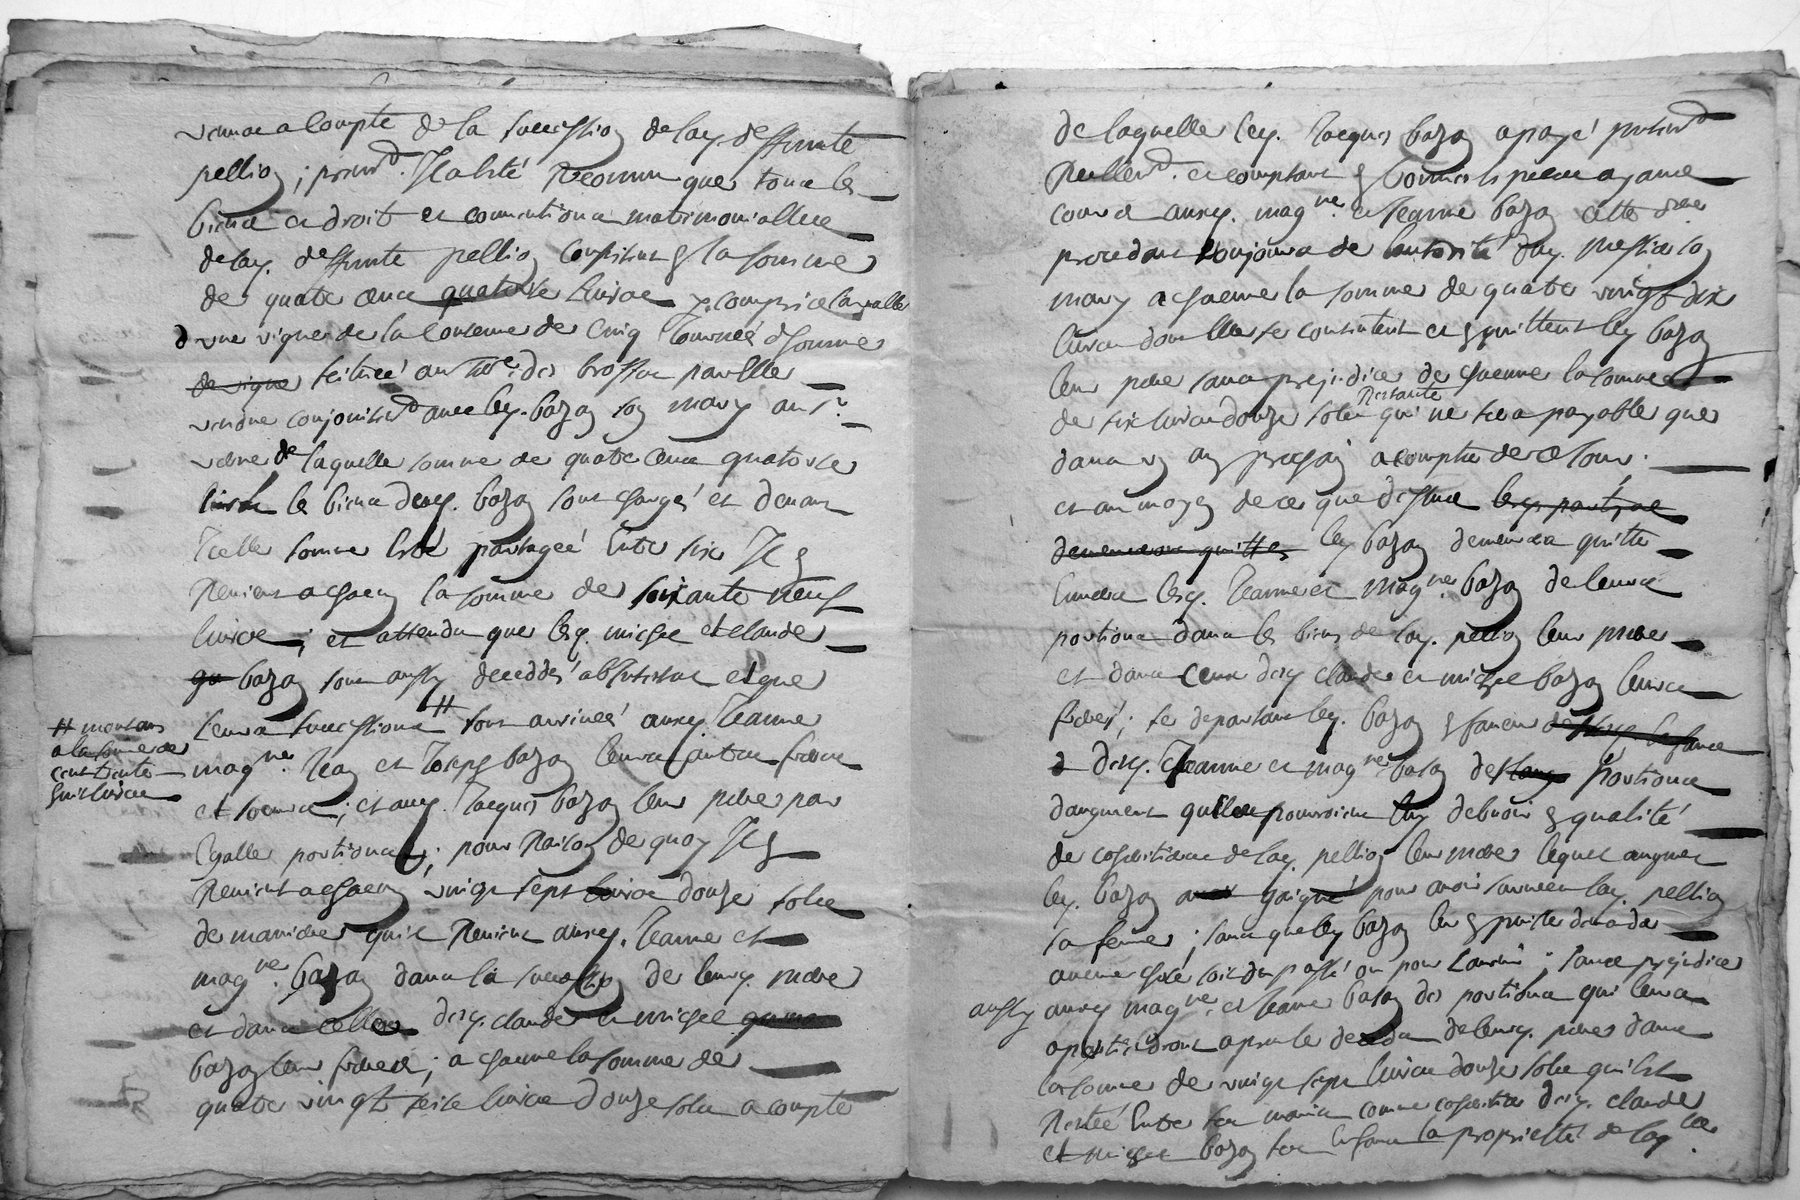 venue a compte de la succession de lay. deffunte
pellion ; presund. Il a esté Reconnu que tous les
biens et droit et conventions matrimonialles
de lay. deffunte pellion consistent en la somme
de quatre cens quatorse livres y compris la valle
d une vigne de la contenue de cinq journée d homme
de vigne scituée au ... des brosses par elle
vendue conjointend avec ley. bozon son mary au sr.
... de laquelle somme de quatre cens quatorse
livres les biens dud. bozon sont chargé et devant
Icelle somme Estre partagée Entre six Il en
Revient a chacun la somme de soixante neuf
livres ; et attendu que lesq. michel et claude
bozon sont aussy deceddés abintestat et que
leurs successions # sont arrivée auxq. Jeanne
# montans
a la somme de
cent trente
huit livres
magne. Jean et Joseph bozon leurs autres freres
et soeurs ; et auq. Jacques bozon leur pere par
Egalle portions ; pour Raison de quoy Il en
Revient a chacun vingt sept livres douze sols
de maniere qu'il Revient auxq. Jeanne et
magne. bozon dans la succession de leurq. mere
et dans celles desq. claude et michel
bozon leurs freres ; a chacune la somme de
quatre vingt seise livres douze sols a compte
de laquelle ley. Jacques bozon a payé presend
Reellend. et comptant en bonnes especes ayant
cours auxq. magne. et Jeanne bozon cette dre
procedant toujours de l'autorité duq. messiat son
mary a chacune la somme de quatre vingt dix
livres dont elles se contentent et en quittent ley bozon
leur pere sans prejudice de chacune la somme
de six livres douze sols Restante qui ne sera payable que
dans un an prochain a compter de ce jour.
et au moyen de ce que dessus lesq. parties
demeureront quittes ley bozon demeurera quitte
Envers lesq. Jeanne et magne. bozon de leurs
portions dans les biens de lay. pellion leur mere
et dans ceux desq. claude et michel bozon leurs
freres ; se departant ley. bozon en faveur
desq. Jeanne et magne. bozon des portions
d'augment qu'elles pourroient luy debvoir en qualité
de cohéritieres de lay. pellion leur mere lequel augment
ley. bozon gaigné pour avoir survecu lay. pellion
sa femme ; sans que ley bozon leur en puisse demander
aucune chose soit du passé ou pour l'avenir ; sans prejudice
aussy auxq. magne. et Jeanne bozon des portions qui leurs
apartiendront apres le deced de leurq. pere dans
la somme de vingt sept livres douze sols qu'il est
Restée Entre ses mains comme coheritier desq. claude
et michel bozon ses Enfans la proprietté de laq. lre